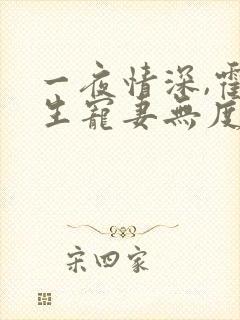 一夜情深,霍
生寵妻無度
宋四家